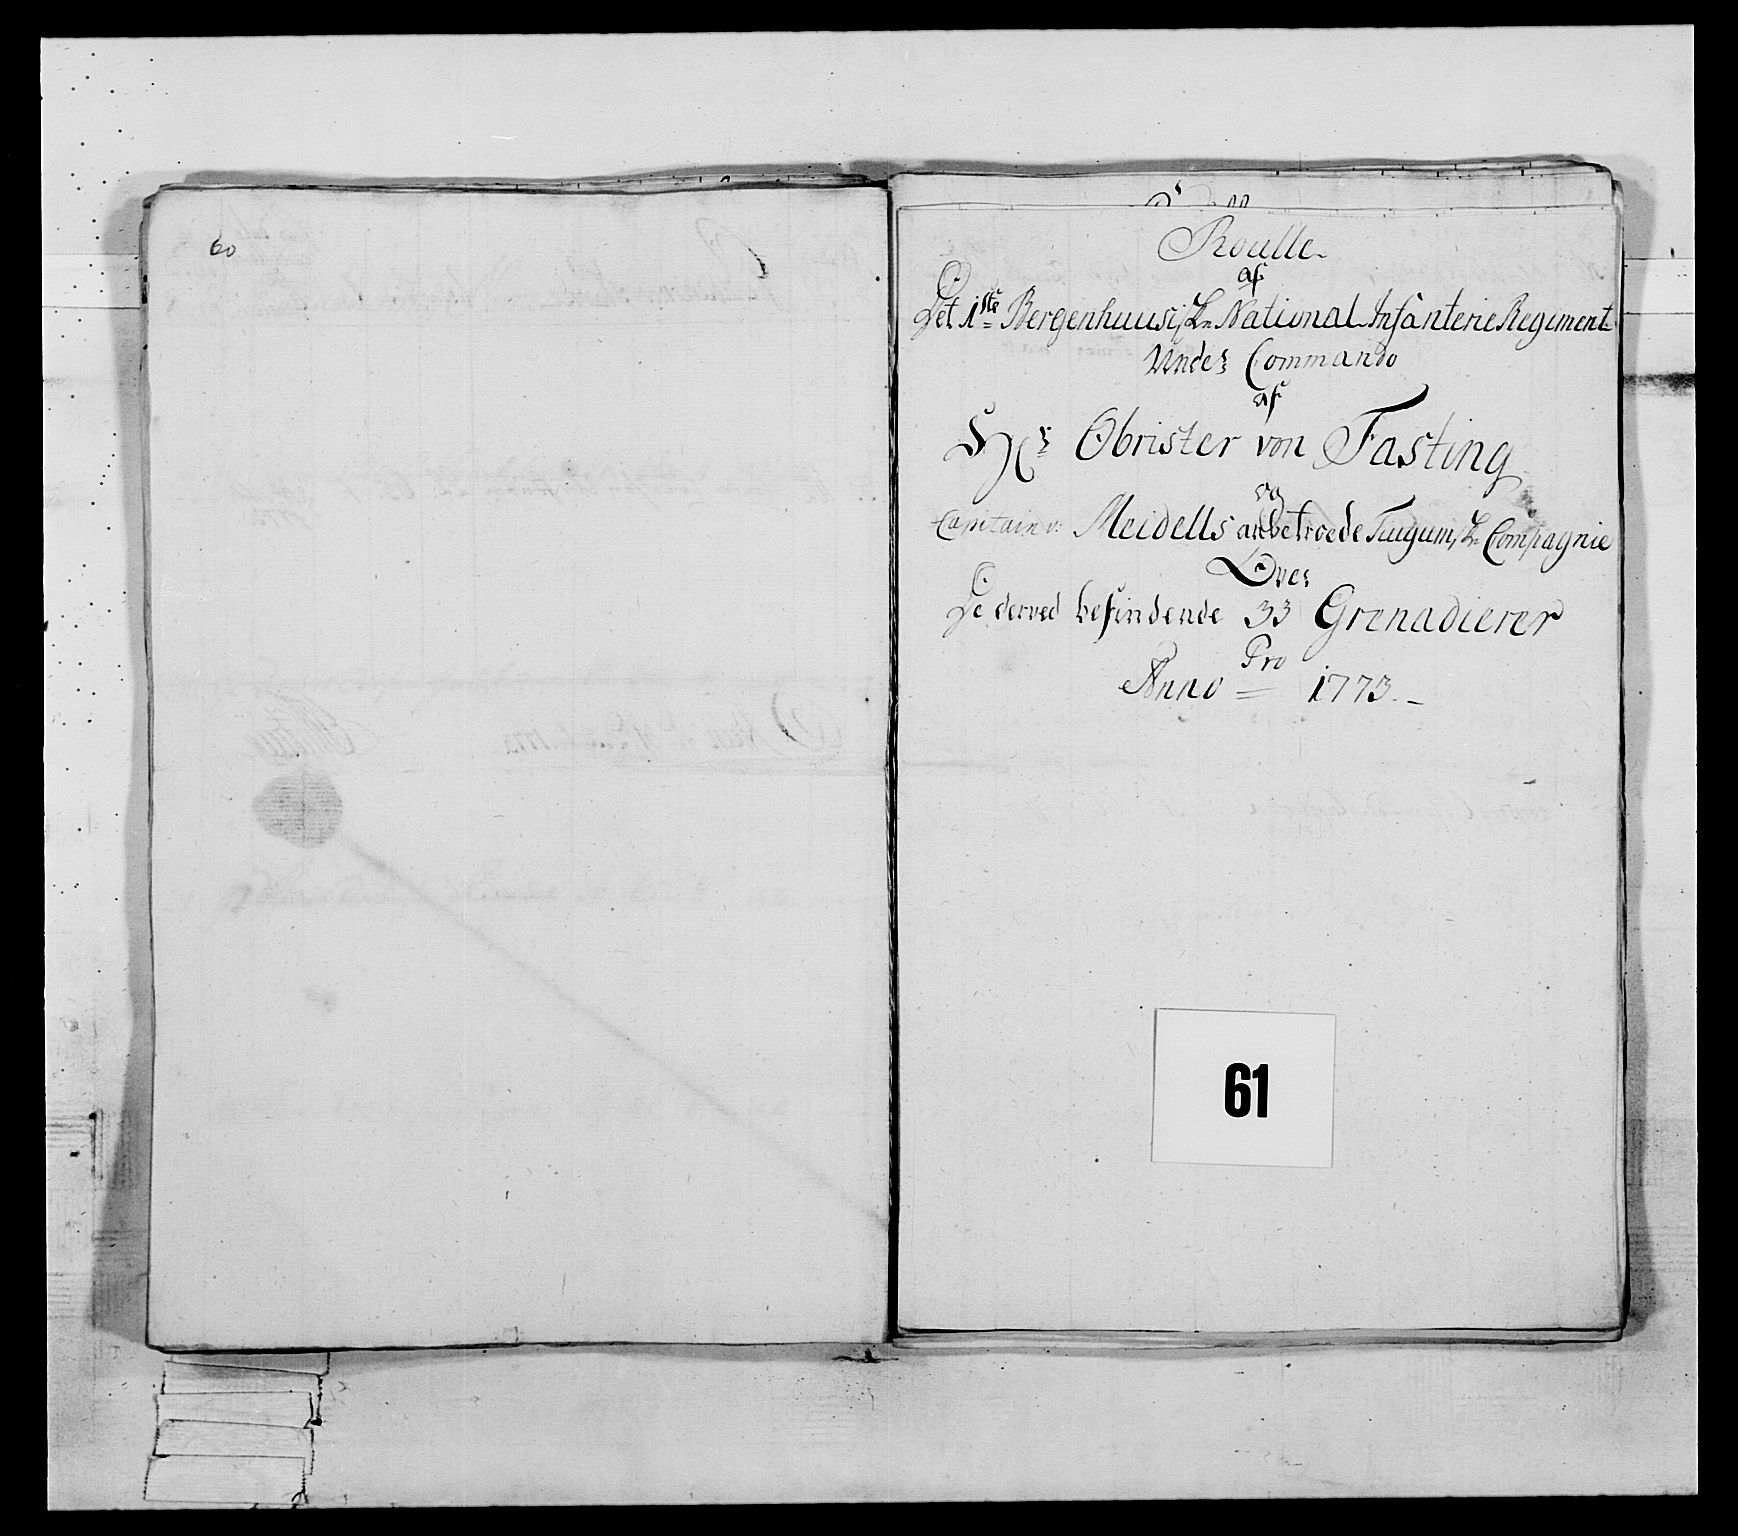 60
Roulle
af
Det 1ste Bergenhuusiske National Infanterie Regiment
Under Commando
af
Hr Obrister von Fasting
og
Capitain v: Meidells anbetroede Compagnie
Over
De derved befindende 33 Grenadierer
Pro
Anno = 1773.
61